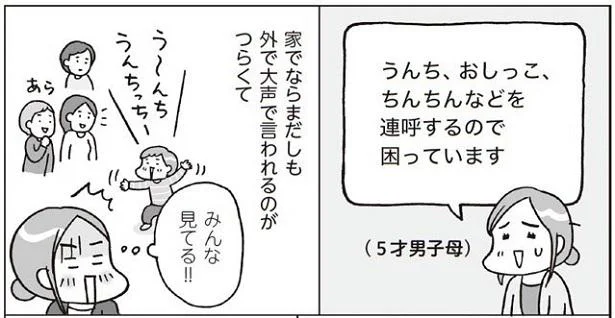 うんち、おしっこ、
ちんちんなどを
連呼するので
困っています
（５才男子母）
家でならまだしも
外で大声で言われるのが
つらくて
う～んち
うんちっちー
あら
みんな
見てる!!